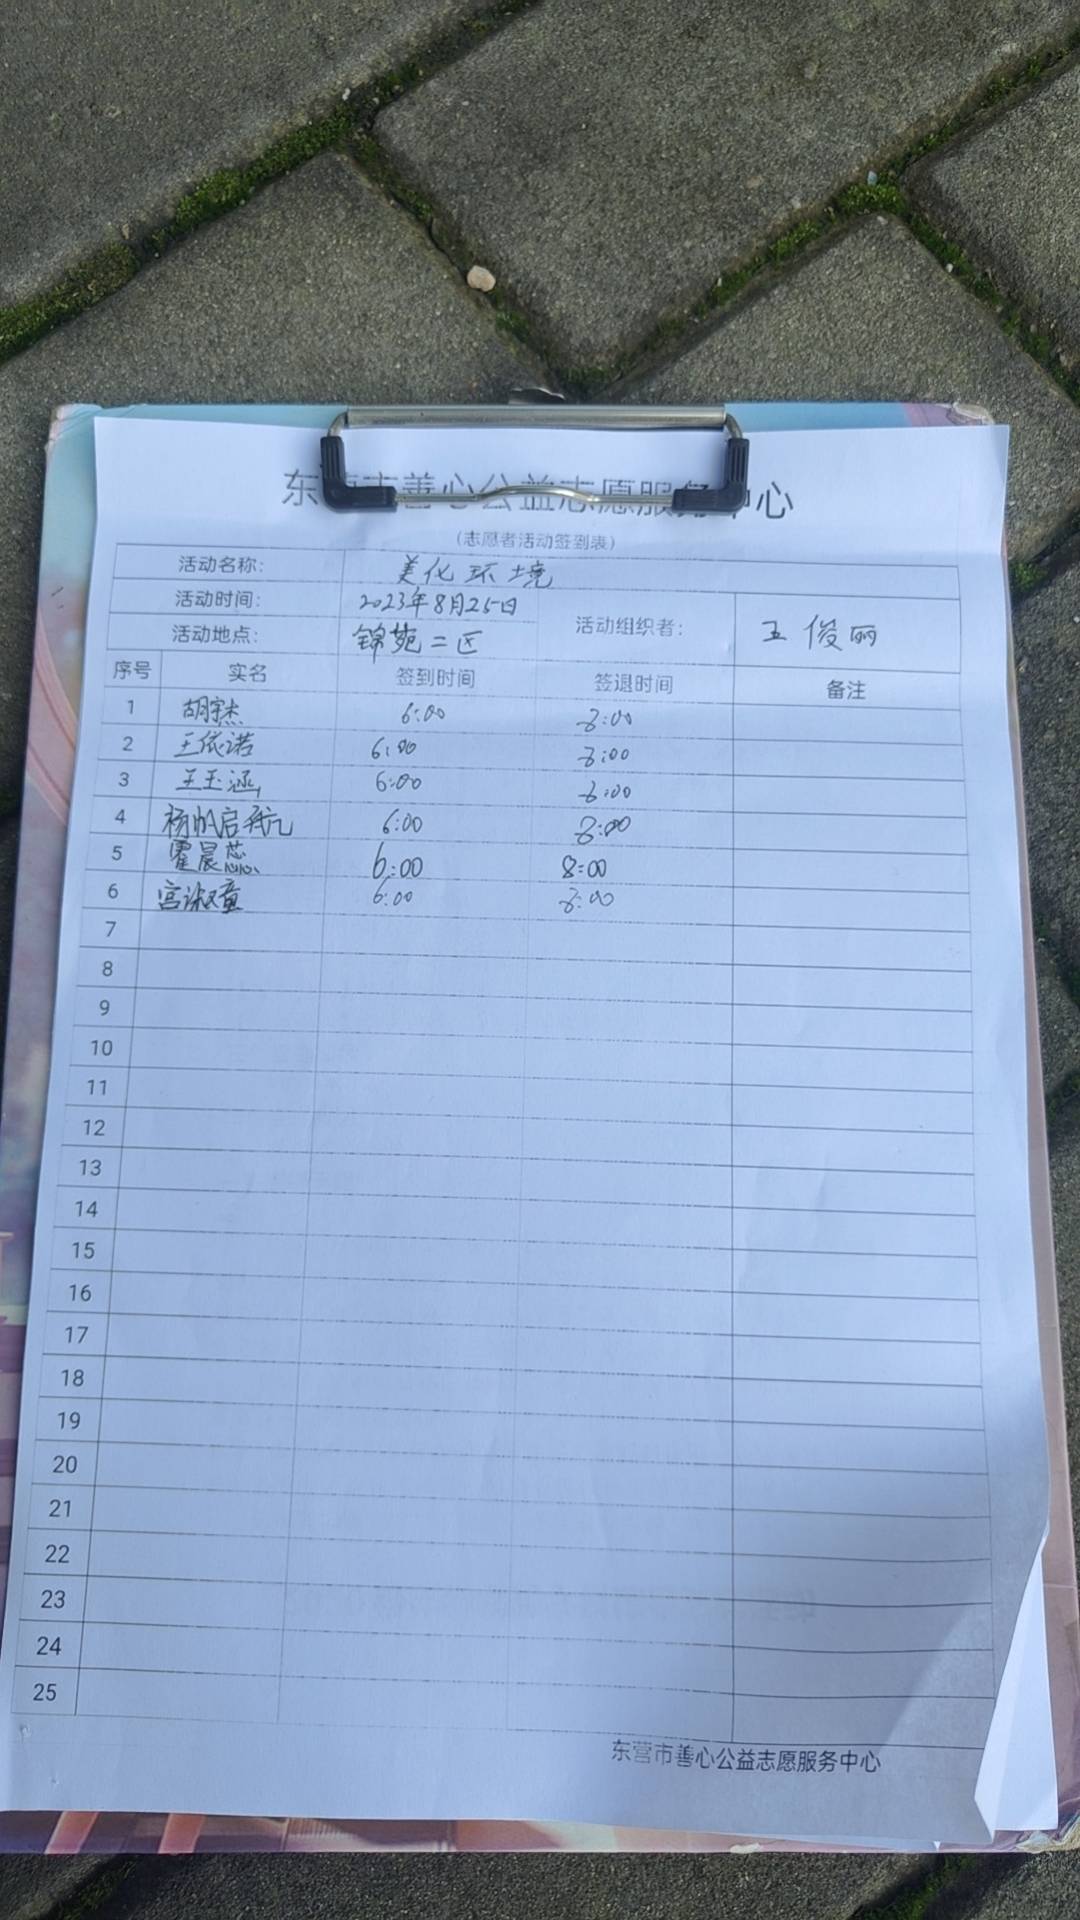 东营市善心公益志愿服务中心
(志愿者活动签到表)
活动名称: 美化环境
活动时间: 2023年8月25日
活动地点: 锦苑二区 活动组织者: 王俊丽
序号 实名 签到时间 签退时间 备注
1 胡宇杰 6:00 8:00
2 王依诺 6:00 8:00
3 王玉涵 6:00 8:00
4 杨帆启航 6:00 8:00
5 霍晨蕊 6:00 8:00
6 宫淑童 6:00 8:00
7
8
9
10
11
12
13
14
15
16
17
18
19
20
21
22
23
24
25
东营市善心公益志愿服务中心